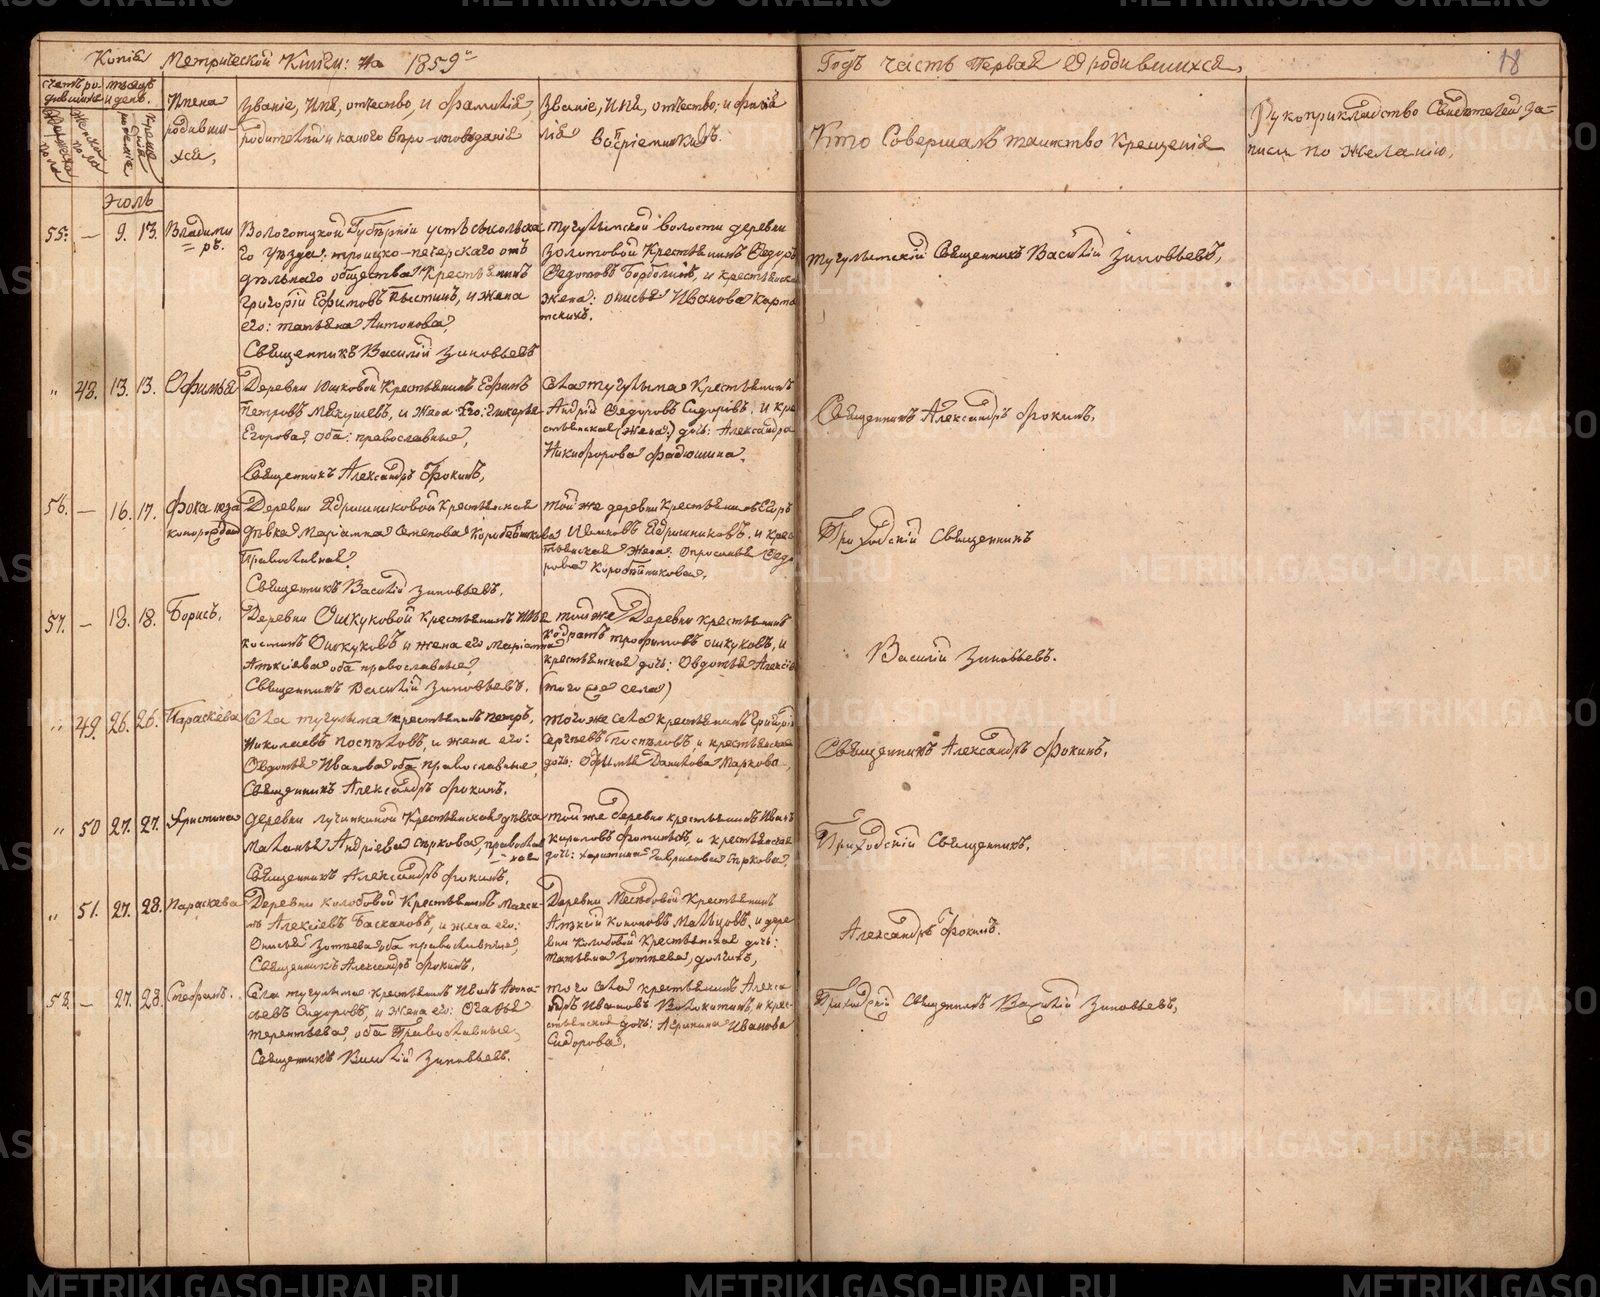 Копія Метрической Книги: на 1859й
Годъ часть первая О родившихся,
18
счетъ ро-
дившихся
мужеска
пола
женска
пола
мѣсяцъ
и день.
рожденія
крещенія
Имена
родивши-
хся,
Званіе, Имя, отчество, и Фамилія,
родителей и какого вѣро-исповѣданія
Званіе, Имя, отчество, и фами
лія
воспріемниковъ.
Кто Совершалъ таинство Крещенія
Рукоприкладство Свидѣтелей за-
писи по желанію,
Іюль
55. — 9. 13. Владими
ръ.
Вологотцкой Губѣрніи устьсысольска
го уѣзда, троицко-печерскаго отъ
дѣльнаго общества Крестьянинъ
Григорій Ефимовъ Пыстинъ, и жена
его: татьяна Антонова,
Священникъ Василій Зиновьевъ
тугулымской волости деревни
Золотовой Крестьянинъ Ѳедоръ
Ѳедотовъ и крестьянска
жена: Иванова
тугулымской Священникъ Василій Зиновьевъ,
" 48. 13. 13. Офимья
Деревни Юшковой Крестьянинъ Ефимъ
Петровъ Мякушевъ, и жена его: гликерья
Егорова, оба: православные,
Священникъ Александръ Фокинъ,
Села тугулыма Крестьянинъ
Андрей Ѳедоровъ Сидоровъ, и кре
стьянская (жена) дочь: Александра
Никифорова Фадюшина.
Священникъ Александръ Фокинъ,
56. — 16. 17. Фока неза
коннорожден
Деревни Ядрышниковой крестьянская
дѣвка Маріамна Семенова Коробейникова
Православная,
Священникъ Василій Зиновьевъ,
той же деревни крестьянинъ Егоръ
Ивановъ Ядрышниковъ, и крес
тьянская жена: Опросинья Ѳедо
рова Коробейникова,
Приходскій Священникъ
57. — 18. 18. Борисъ,
Деревни Ошкуковой Крестьянинъ
Ошкуковъ и жена его Маріамна
Алексіева оба православные,
Священникъ Василій Зиновьевъ,
той же Деревни крестьянинъ
Кодратъ трофимовъ ошкуковъ, и
крестьянская дочь: Овдотья Алексіе
(того же села)
Василій Зиновьевъ.
" 49. 26. 26. Параскева
Села тугулыма крестьянинъ петръ,
Николаевъ Поспѣловъ, и жена его:
Овдотья Иванова оба православные,
Священникъ Александръ Фокинъ.
того же села крестьянинъ Григорій
Сергѣевъ Поспѣловъ, и крестьянская
дочь: Офимья Данилова Маркова,
Священникъ Александръ Фокинъ,
" 50 27. 27. Христина
Деревни лучинкиной Крестьянская дѣвка
Маланья Андріева Сѣркова, православ
ная
Священникъ Александръ Фокинъ,
той же деревни крестьянинъ Иванъ
Кириловъ Фоминыхъ, и крестьянская
дочь: харитина Гаврилова Сѣркова.
Приходскій Священникъ.
" 51. 27. 28. Параскева
Деревни Колобовой Крестьянинъ Макси
мъ Алексіевъ Баскановъ, и жена его:
Онисья Зотѣева оба православные,
Священникъ Александръ Фокинъ,
Деревни Крестьянинъ
Алексій Кононовъ Мальцовъ, и дере
вни Колобовой Крестьянская дочь:
татьяна Зотѣева,
Александръ Фокинъ.
58. — 27. 28. Стефанъ.
Села тугулыма крестьянинъ Иванъ Афона-
сьевъ Сидоровъ, и жена его: Огафья
терентьева, оба Православные,
Священникъ Василій Зиновьевъ.
того села крестьянинъ Алекса
ндръ Ивановъ Волокитинъ, и крес
стьянская дочь: Агрипина Иванова
Сидорова.
Приходскій Священникъ Василій Зиновьевъ,
METRIKI.GASO-URAL.RU